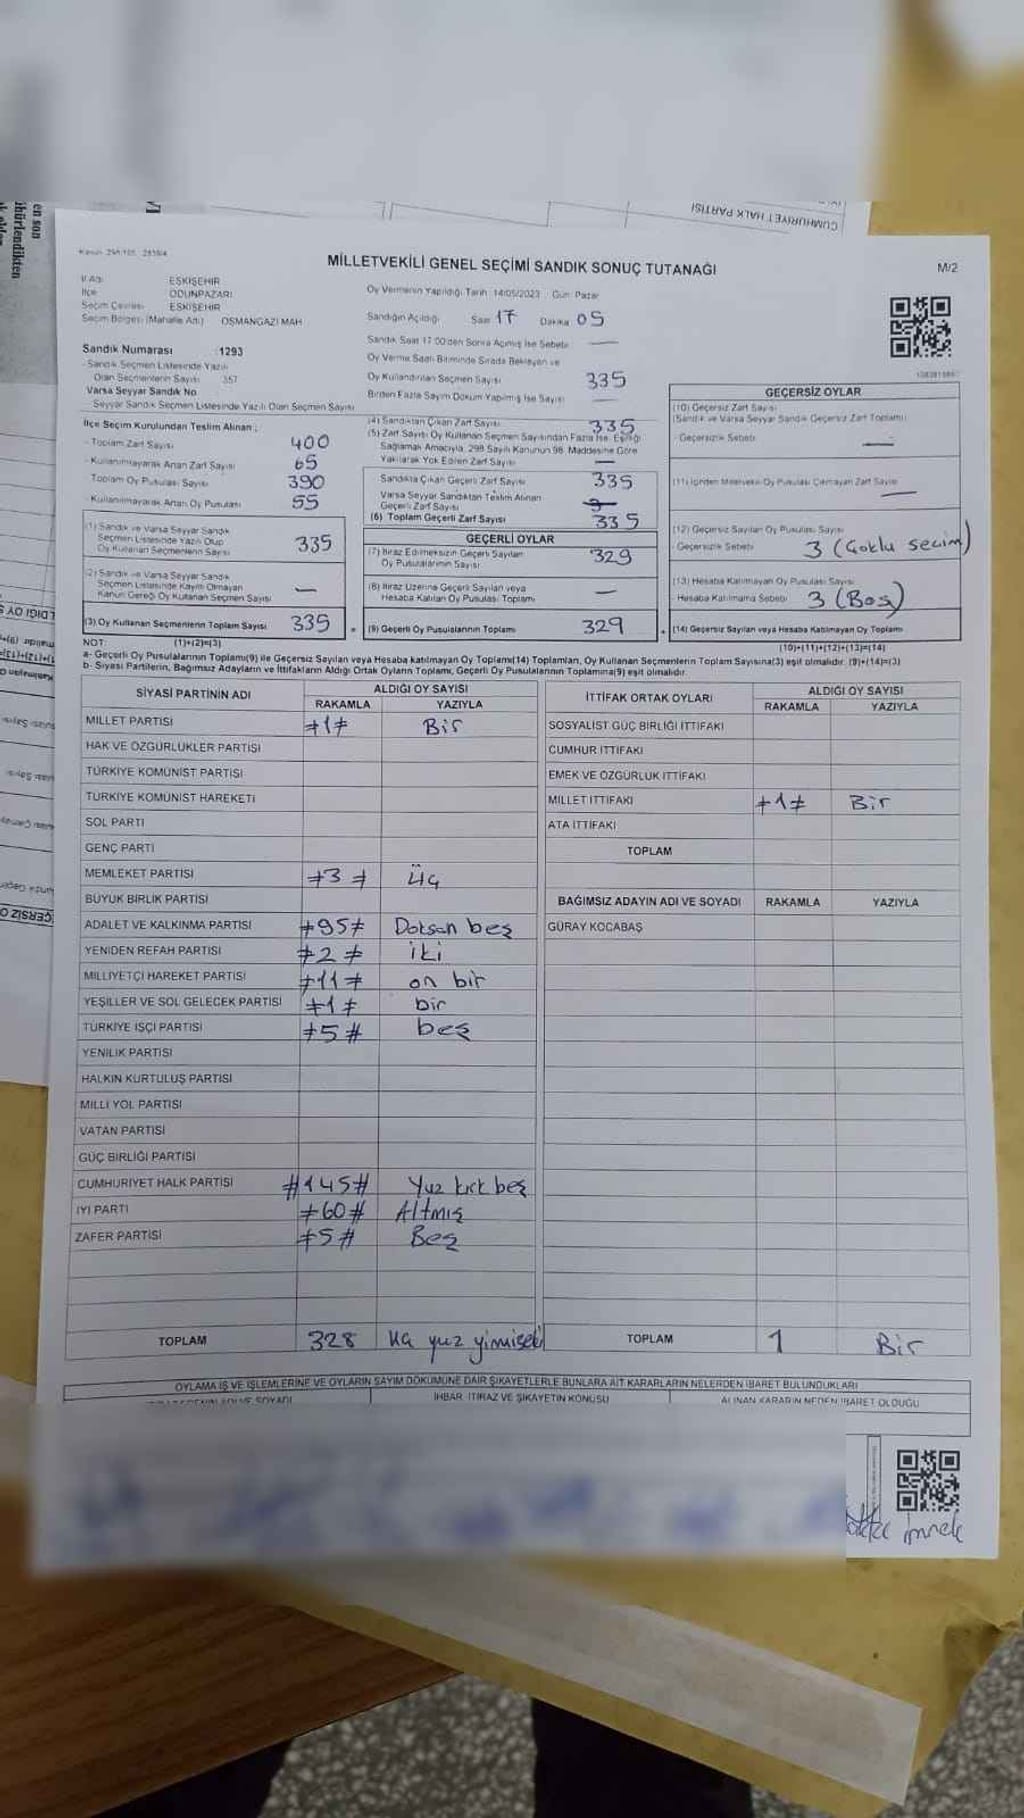 CUMHURİYET HALK PARTİSİ
en son
ühürlendikten
MİLLETVEKİLİ GENEL SEÇİMİ SANDIK SONUÇ TUTANAĞI
M/2
İl Adı ESKİŞEHİR
İlçe ODUNPAZARI
Seçim Çevresi ESKİŞEHİR
Seçim Bölgesi (Mahalle Adı) OSMANGAZİ MAH
Oy Vermenin Yapıldığı Tarih 14/05/2023 Gün: Pazar
Sandığın Açıldığı Saat 17 Dakika 05
Sandık Saat 17:00'den Sonra Açılmış İse Sebebi —
Oy Verme Saati Bitiminde Sırada Bekleyen ve
Oy Kullandırılan Seçmen Sayısı 335
Birden Fazla Sayım Döküm Yapılmış İse Sayısı —
Sandık Numarası : 1293
- Sandık Seçmen Listesinde Yazılı
Olan Seçmenlerin Sayısı 357
Varsa Seyyar Sandık No
Seyyar Sandık Seçmen Listesinde Yazılı Olan Seçmen Sayısı
İlçe Seçim Kurulundan Teslim Alınan ;
- Toplam Zarf Sayısı 400
- Kullanılmayarak Artan Zarf Sayısı 65
Toplam Oy Pusulası Sayısı 390
- Kullanılmayarak Artan Oy Pusulası 55
(1) Sandık ve Varsa Seyyar Sandık
Seçmen Listesinde Yazılı Olup
Oy Kullanan Seçmenlerin Sayısı 335
(2) Sandık ve Varsa Seyyar Sandık
Seçmen Listesinde Kayıtlı Olmayan
Kanun Gereği Oy Kullanan Seçmen Sayısı —
(3) Oy Kullanan Seçmenlerin Toplam Sayısı 335
(4) Sandıktan Çıkan Zarf Sayısı 335
(5) Zarf Sayısı Oy Kullanan Seçmen Sayısından Fazla İse, Eşitliği
Sağlamak Amacıyla, 298 Sayılı Kanunun 98. Maddesine Göre
Yakılarak Yok Edilen Zarf Sayısı —
Sandıkta Çıkan Geçerli Zarf Sayısı 335
Varsa Seyyar Sandıktan Teslim Alınan
Geçerli Zarf Sayısı
(6) Toplam Geçerli Zarf Sayısı 335
GEÇERLİ OYLAR
(7) İtiraz Edilmeksizin Geçerli Sayılan
Oy Pusulalarının Sayısı 329
(8) İtiraz Üzerine Geçerli Sayılan veya
Hesaba Katılan Oy Pusulası Toplamı —
(9) Geçerli Oy Pusulalarının Toplamı 329
GEÇERSİZ OYLAR
(10) Geçersiz Zarf Sayısı
(Sandık ve Varsa Seyyar Sandık Geçersiz Zarf Toplamı)
- Geçersizlik Sebebi —
(11) İçinden Milletvekili Oy Pusulası Çıkmayan Zarf Sayısı —
(12) Geçersiz Sayılan Oy Pusulası Sayısı
- Geçersizlik Sebebi 3 (Çoklu seçim)
(13) Hesaba Katılmayan Oy Pusulası Sayısı
- Hesaba Katılmama Sebebi 3 (Boş)
(14) Geçersiz Sayılan veya Hesaba Katılmayan Oy Toplamı
NOT: (1)+(2)=(3)
(10)+(11)+(12)+(13)=(14)
a- Geçerli Oy Pusulalarının Toplamı(9) ile Geçersiz Sayılan veya Hesaba katılmayan Oy Toplamı(14) Toplamları, Oy Kullanan Seçmenlerin Toplam Sayısına(3) eşit olmalıdır. (9)+(14)=(3)
b- Siyasi Partilerin, Bağımsız Adayların ve İttifakların Aldığı Oyların Toplamı, Geçerli Oy Pusulalarının Toplamına(9) eşit olmalıdır.
SİYASİ PARTİNİN ADI ALDIĞI OY SAYISI
RAKAMLA YAZIYLA
MİLLET PARTİSİ #1# Bir
HAK VE ÖZGÜRLÜKLER PARTİSİ
TÜRKİYE KOMÜNİST PARTİSİ
TÜRKİYE KOMÜNİST HAREKETİ
SOL PARTİ
GENÇ PARTİ
MEMLEKET PARTİSİ #3# Üç
BÜYÜK BİRLİK PARTİSİ
ADALET VE KALKINMA PARTİSİ #95# Doksan beş
YENİDEN REFAH PARTİSİ #2# iki
MİLLİYETÇİ HAREKET PARTİSİ #11# on bir
YEŞİLLER VE SOL GELECEK PARTİSİ #1# bir
TÜRKİYE İŞÇİ PARTİSİ #5# beş
YENİLİK PARTİSİ
HALKIN KURTULUŞ PARTİSİ
MİLLİ YOL PARTİSİ
VATAN PARTİSİ
GÜÇ BİRLİĞİ PARTİSİ
CUMHURİYET HALK PARTİSİ #145# Yüz kırk beş
İYİ PARTİ #60# Altmış
ZAFER PARTİSİ #5# Beş
TOPLAM 328 üç yüz yirmisek
İTTİFAK ORTAK OYLARI ALDIĞI OY SAYISI
RAKAMLA YAZIYLA
SOSYALİST GÜÇ BİRLİĞİ İTTİFAKI
CUMHUR İTTİFAKI
EMEK VE ÖZGÜRLÜK İTTİFAKI
MİLLET İTTİFAKI #1# Bir
ATA İTTİFAKI
TOPLAM
BAĞIMSIZ ADAYIN ADI VE SOYADI RAKAMLA YAZIYLA
GÜRAY KOCABAŞ
TOPLAM 1 Bir
OYLAMA İŞ VE İŞLEMLERİNE VE OYLARIN SAYIM DÖKÜMÜNE DAİR ŞİKAYETLERLE BUNLARA AİT KARARLARIN NELERDEN İBARET BULUNDUKLARI
İHBAR, İTİRAZ VE ŞİKAYETİN KONUSU
ALINAN KARARIN NEDEN İBARET OLDUĞU